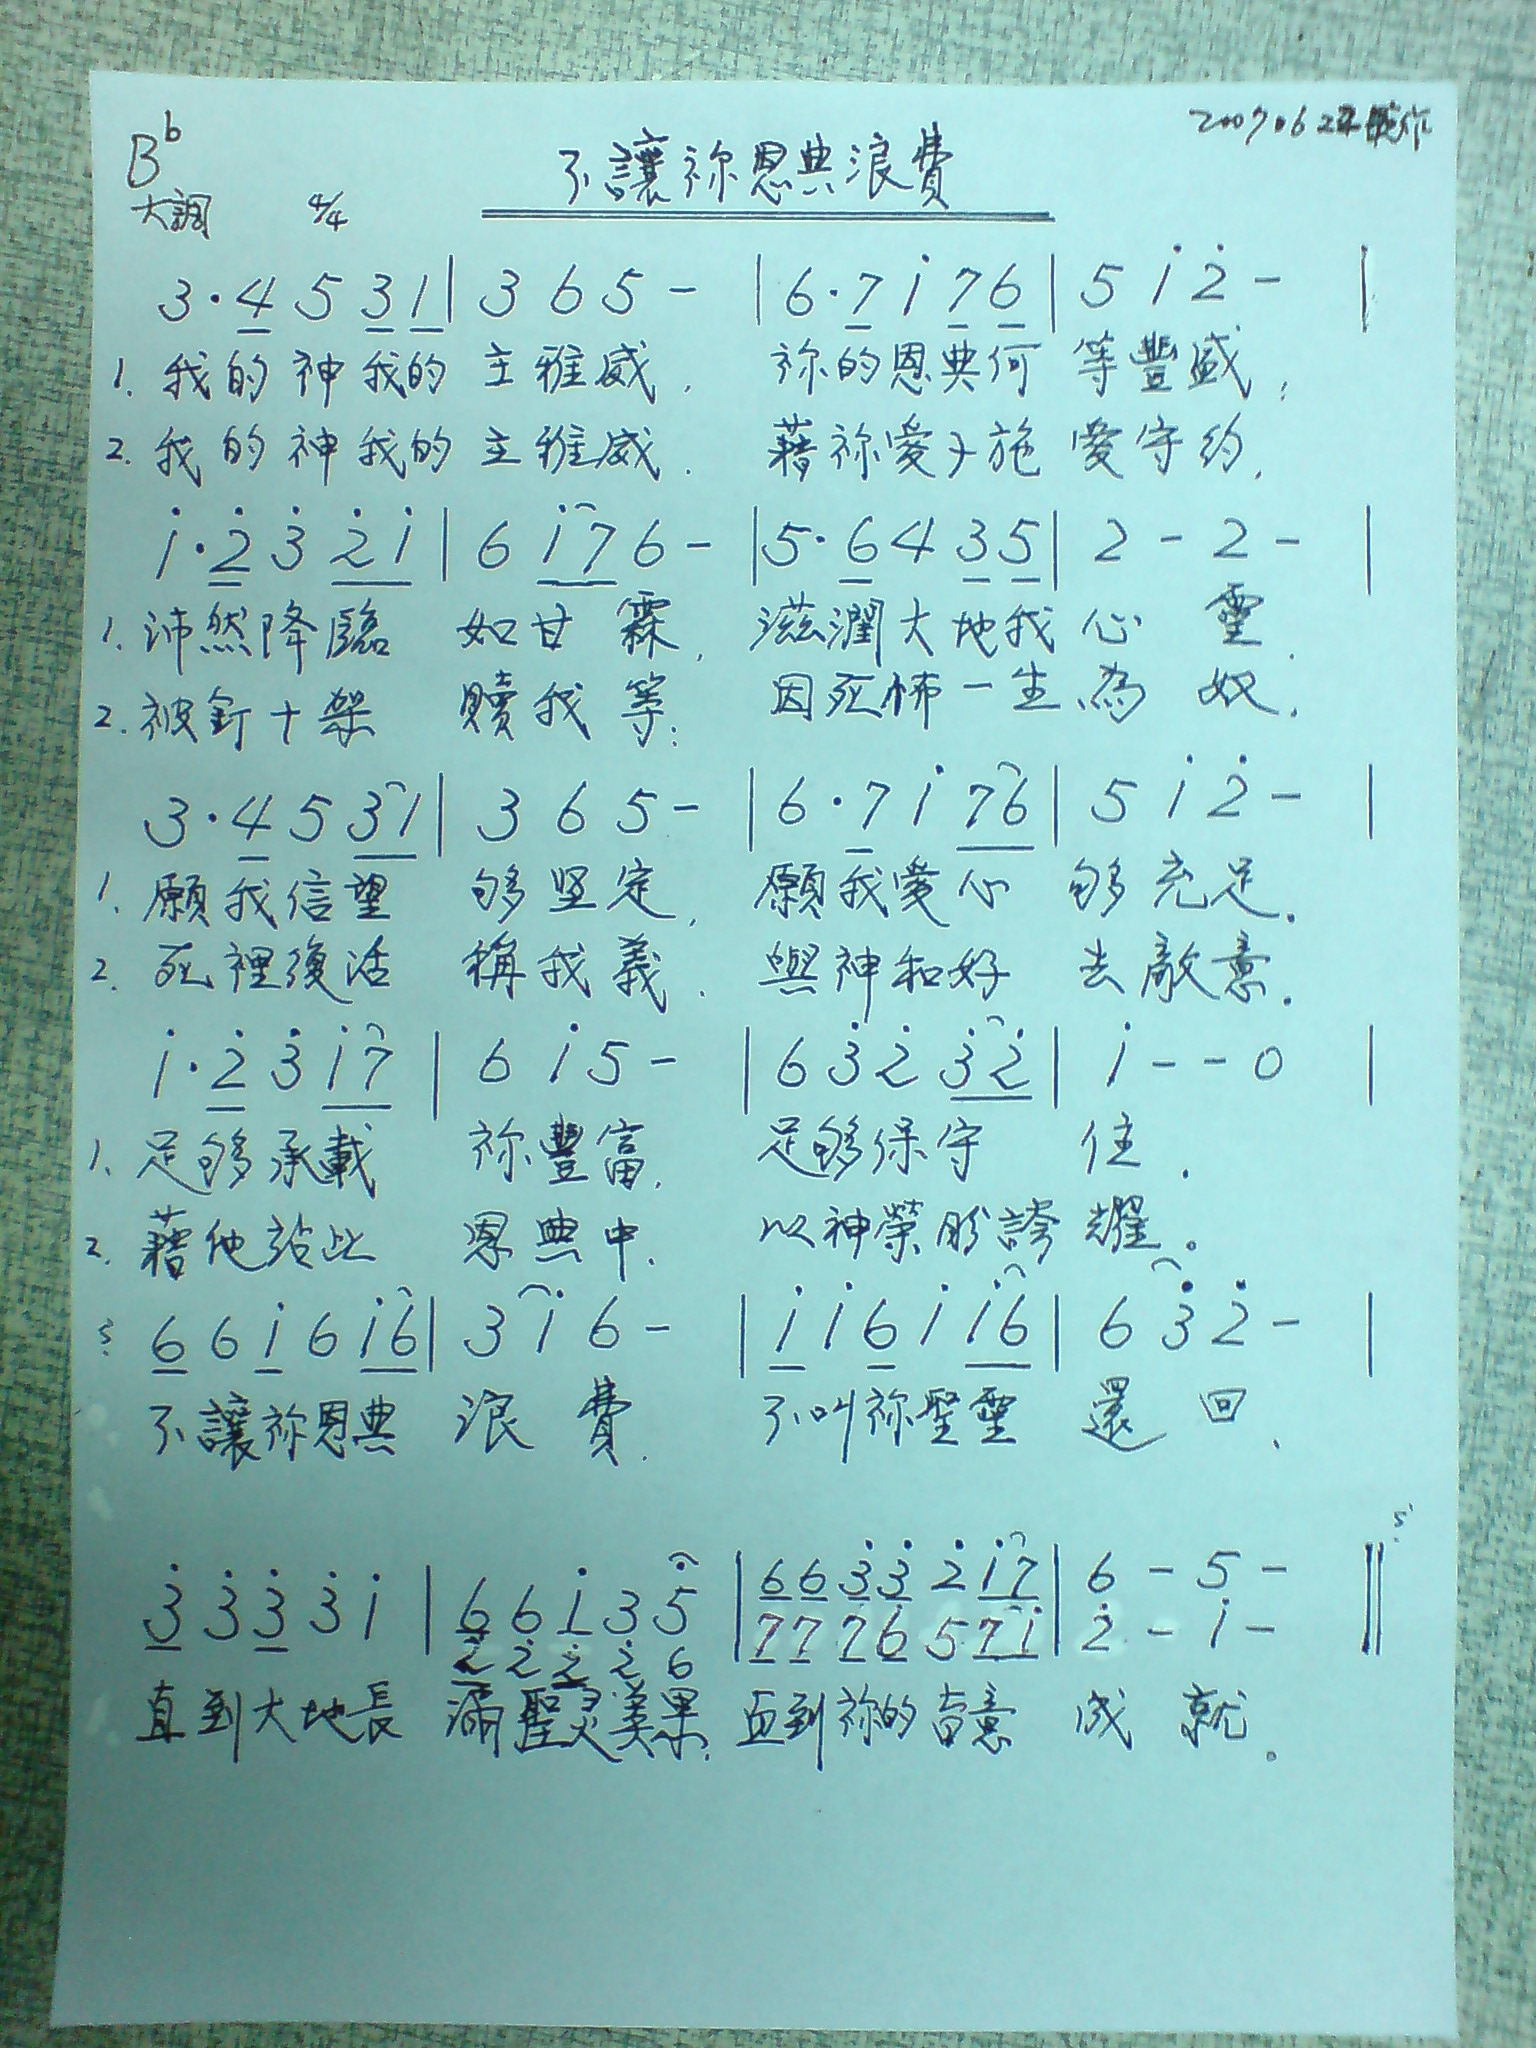 2007.6.2
B♭
不讓祢恩典浪費
大調 4/4
3·4 5 3 1 | 3 6 5 - | 6·7 i 7 6 | 5 i 2̇ - |
1. 我的神我的主雅威, 祢的恩典何等豐盛;
2. 我的神我的主雅威. 藉祢愛子施愛守約,
i·2̇ 3̇ 2̇ i | 6 i 7 6 - | 5·6 4 3 5 | 2 - 2 - |
1. 沛然降臨如甘霖, 滋潤大地我心靈.
2. 被釘十架贖我等; 因死怖一生為奴,
3·4 5 3 1 | 3 6 5 - | 6·7 i 7 6 | 5 i 2̇ - |
1. 願我信望够坚定, 願我愛心够充足.
2. 死裡復活稱我義. 與神和好去敵意.
i·2̇ 3̇ i 7 | 6 i 5 - | 6 3̇ 2̇ 3̇ 2̇ | i - - 0 |
1. 足够承載祢豐富, 足够保守住.
2. 藉他站此恩典中. 以神榮盼誇耀。
6 6 i 6 i 6 | 3 i 6 - | i i 6 i i 6 | 6 3̇ 2̇ - |
不讓祢恩典浪費. 不叫祢聖靈還回、
3̇ 3̇ 3̇ 3̇ i | 6 6 i 3 5̇ | 6 6 3̇ 3̇ 2̇ i 7 | 6 - 5 - ‖
2̇ 2̇ 2̇ 2̇ 6 7 7 7 6 5 7 i | 2̇ - i -
直到大地長滿聖灵美果, 直到祢的旨意成就。